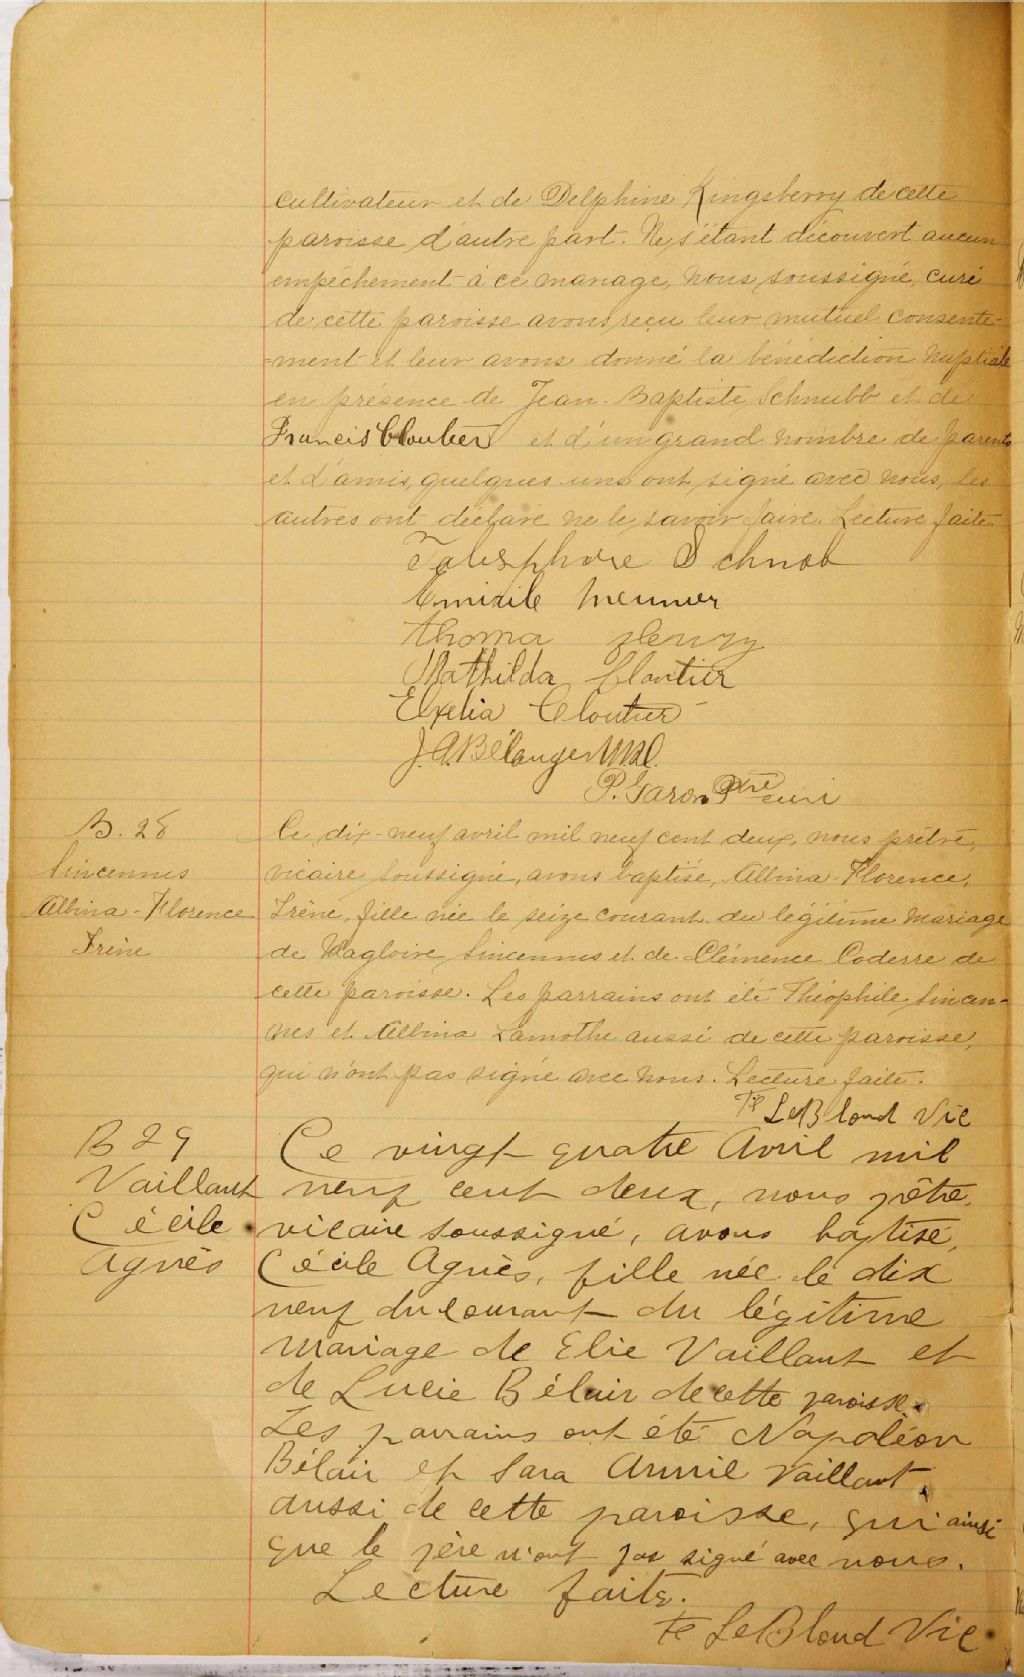 cultivateur et de Delphine Kingsberry de cette
paroisse d'autre part. Ne s'étant découvert aucun
empêchement à ce mariage, nous soussigné, curé
de cette paroisse avons reçu leur mutuel consente-
-ment et leur avons donné la bénédiction nuptiale
en présence de Jean-Baptiste Schnubb et de
Francis Cloutier et d'un grand nombre de parents
et d'amis, quelques uns ont signé avec nous, les
autres ont déclaré ne le savoir faire. Lecture faite.
Telesphore Schnob
Meunier
Thoma
Mathilda Cloutier
Exelia Cloutier
J.A. Bélanger M.D.
P. Garon Ptre curé
B. 28
Sincennes
Albina-Florence
Irène
Ce dix-neuf avril mil neuf cent deux, nous prêtre,
vicaire soussigné, avons baptisé, Albina-Florence,
Irène, fille née le seize courant du légitime mariage
de Magloire Sincennes et de Clémence Coderre de
cette paroisse. Les parrains ont été Théophile Sincen-
nes et Albina Lamothe aussi de cette paroisse,
qui n'ont pas signé avec nous. Lecture faite.
LeBlond Vic
B 29
Vaillant
Cécile
Agnès
Ce vingt quatre Avril mil
neuf cent deux, nous prêtre,
vicaire soussigné, avons baptisé,
Cécile Agnès, fille née le dix
neuf du courant du légitime
mariage de Elie Vaillant et
de Lucie Bélair de cette paroisse.
Les parrains ont été Napoléon
Bélair et Sara Annie Vaillant,
aussi de cette paroisse, qui ainsi
que le père n'ont pas signé avec nous.
Lecture faite.
LeBlond Vic